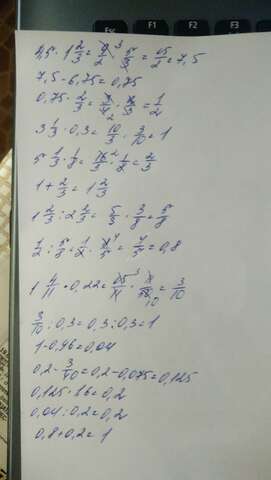 F6 F7 F8
4,5 · 1 2/3 = 9/2 · 5/3 = 15/2 = 7,5
7,5 - 6,75 = 0,75
0,75 · 2/3 = 3/4 · 2/3 = 1/2
3 1/3 · 0,3 = 10/3 · 3/10 = 1
5 1/3 · 1/8 = 16/3 · 1/8 = 2/3
1 + 2/3 = 1 2/3
1 2/3 : 2 2/3 = 5/3 · 3/8 = 5/8
1/2 : 5/8 = 1/2 · 8/5 = 4/5 = 0,8
1 4/11 · 0,22 = 15/11 · 11/50 = 3/10
3/10 : 0,3 = 0,3 : 0,3 = 1
1 - 0,96 = 0,04
0,2 - 3/40 = 0,2 - 0,075 = 0,125
0,125 · 1,6 = 0,2
0,04 : 0,2 = 0,2
0,8 + 0,2 = 1